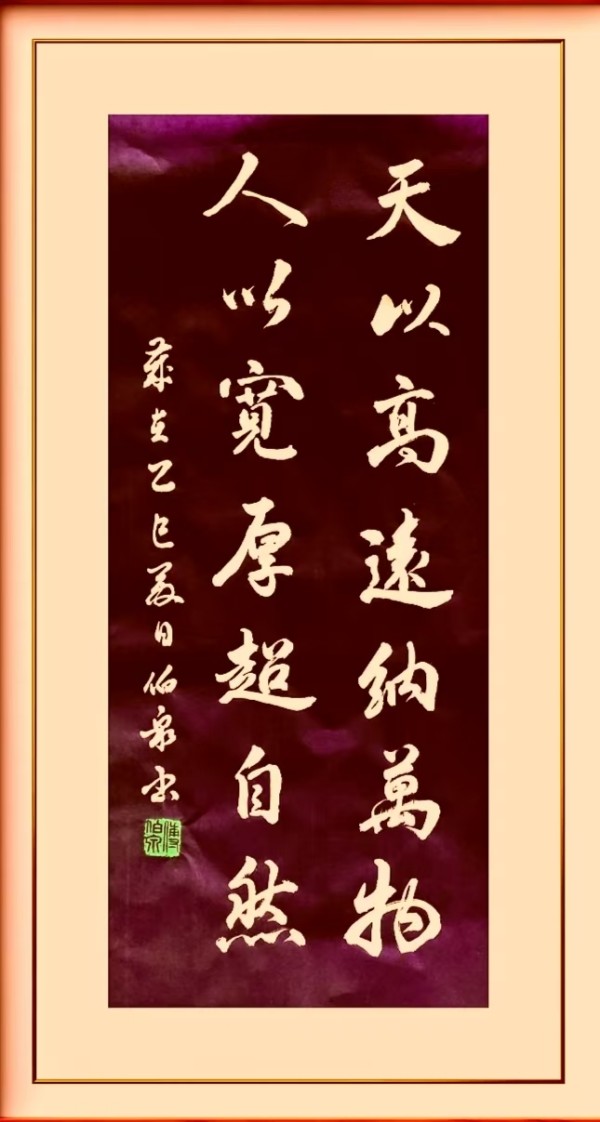 天以高遠納萬物
人以寬厚超自然
歲在乙巳夏日伯泉书